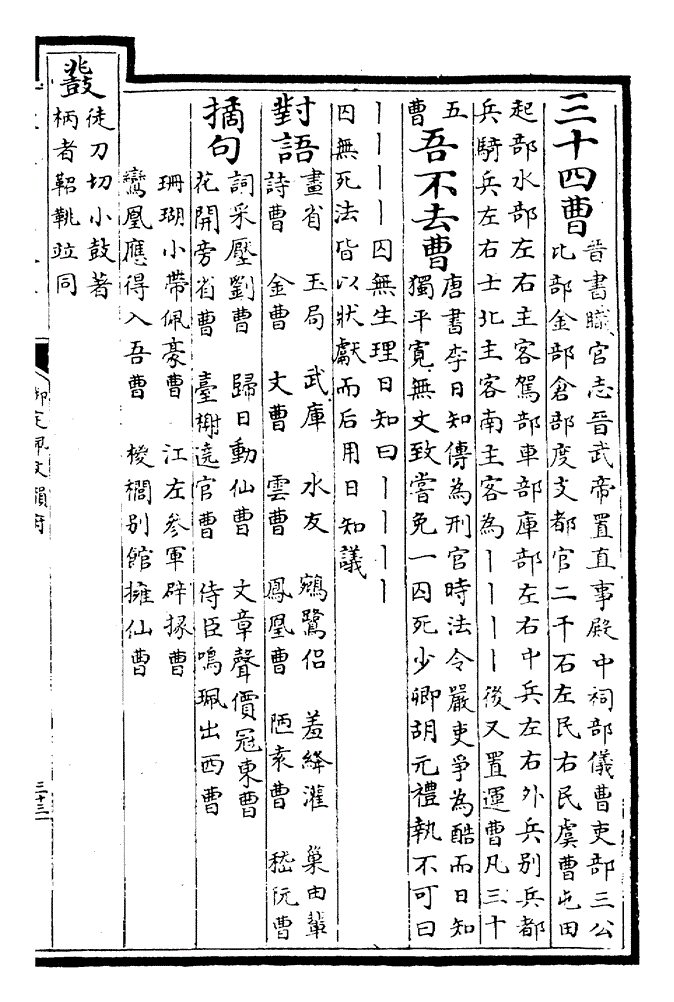 三十四曹
晉書職官志晉武帝置直事殿中祠部儀曹吏部三公
比部金部倉部度支都官二千石左民右民虞曹屯田
起部水部左右主客駕部車部庫部左右中兵左右外兵別兵都
兵騎兵左右士北主客南主客為｜｜｜｜後又置運曹凡三十
五曹
吾不去曹
唐書李日知傳為刑官時法令嚴吏爭為酷而日知
獨平寬無文致嘗免一囚死少卿胡元禮執不可曰
｜｜｜｜囚無生理日知曰｜｜｜｜
囚無死法皆以狀獻而后用日知議
對語
畫省 玉局 武庫 水友 鵷鷺侶 羞絳灌 巢由輩
詩曹 金曹 文曹 雲曹 鳳凰曹 陋袁曹 嵇阮曹
摘句
詞采壓劉曹 歸日動仙曹 文章聲價冠東曹
花開旁省曹 臺榭遶官曹 侍臣鳴珮出西曹
珊瑚小帶佩豪曹 江左參軍辟掾曹
鸞凰應得入吾曹 椶櫚別館擁仙曹
鼗
徒刀切小鼓著
柄者鞀鞉竝同
御定佩文韻府
三十三